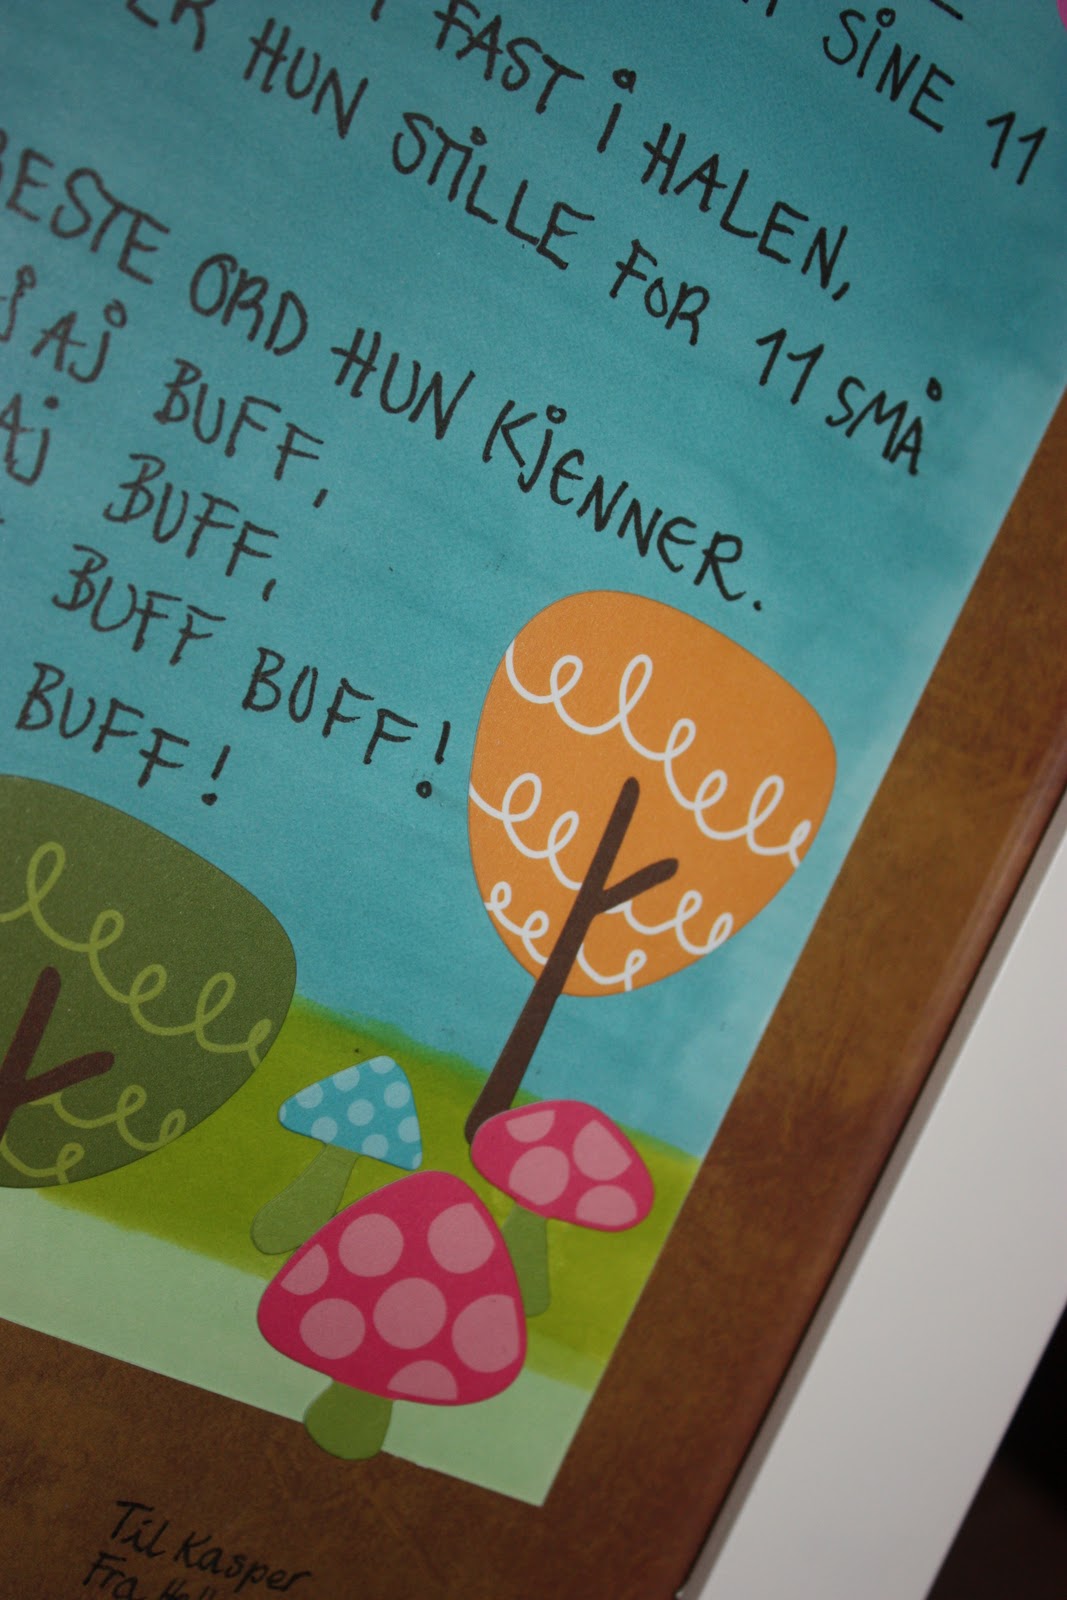 SINE 11
FAST I HALEN,
HUN STILLE FOR 11 SMÅ
BESTE ORD HUN KJENNER.
ÅJ BUFF,
AJ BUFF,
BUFF BUFF!
BUFF!
Til Kasper
Fra